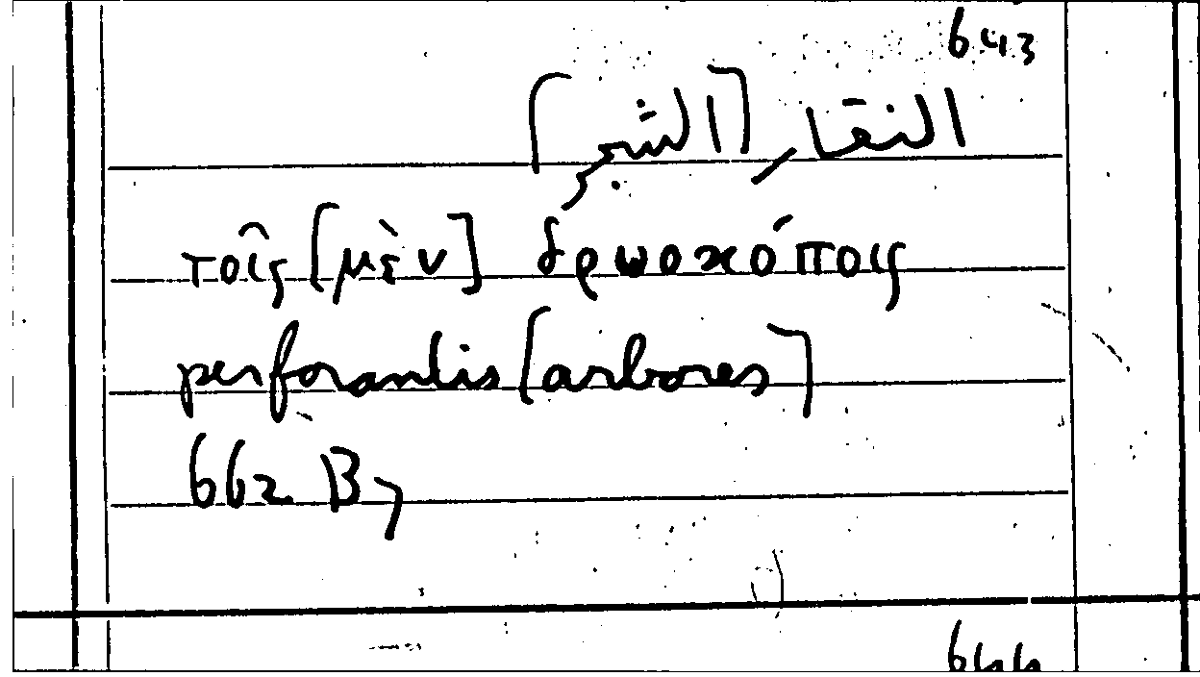 643
النقار [الشجر]
τοῖς [μὲν] δρυοκόποις
perforantis [arbores]
662 B 7
644